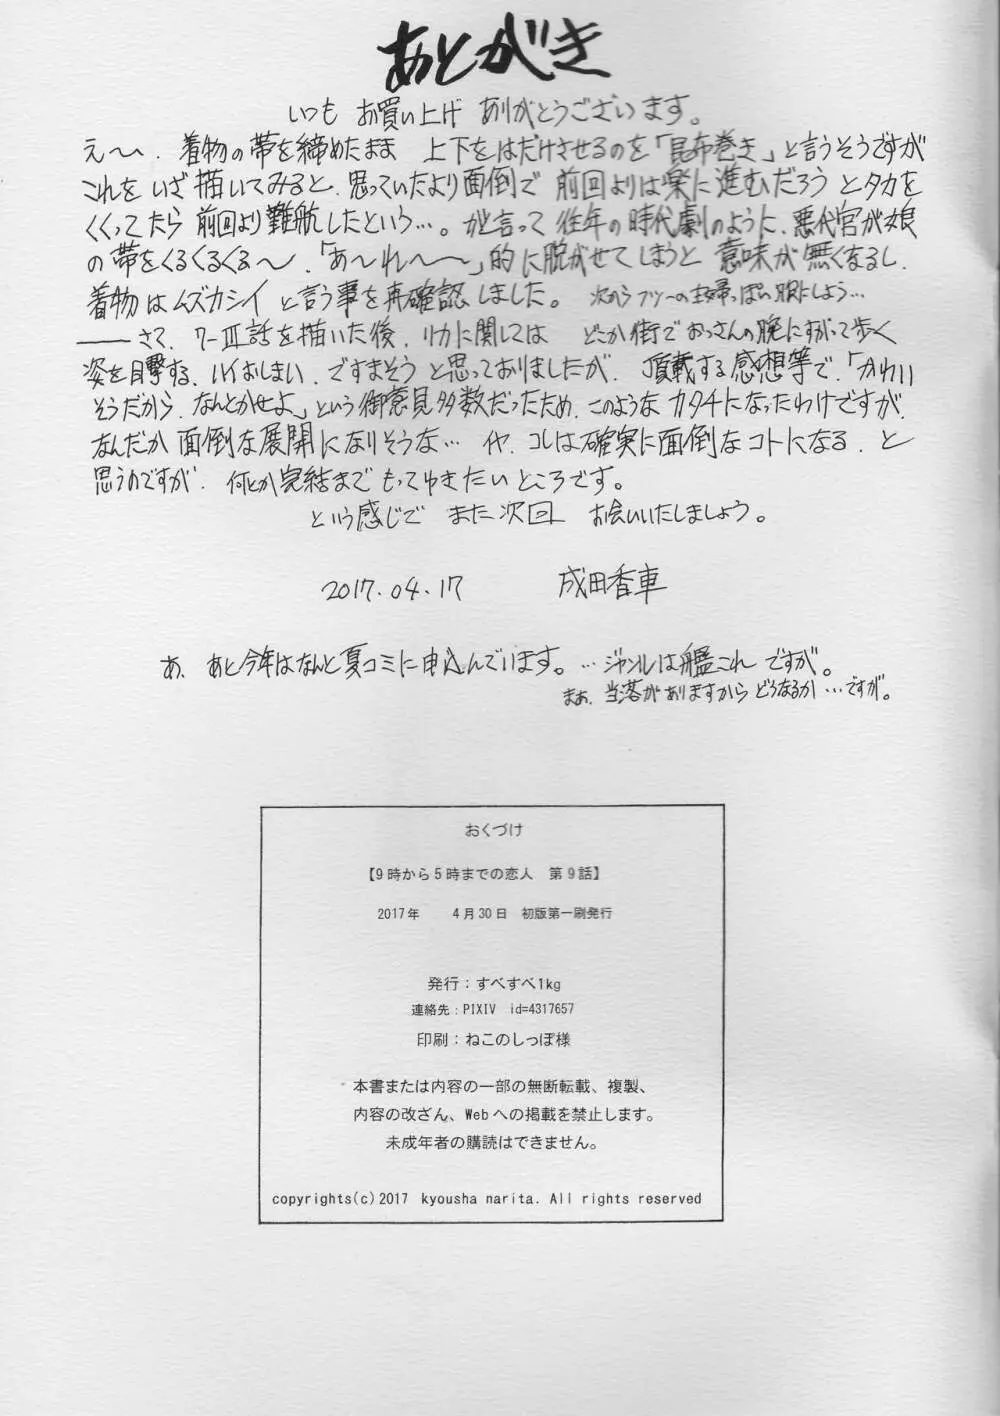 あとがき
いつも お買い上げ ありがとうございます。
え〜〜、着物の帯を締めたまま 上下をはだけさせるのを「昆布巻き」と言うそうですが
これを いざ描いてみると、思っていたより面倒で 前回よりは楽に進むだろう とタカを
くくってたら 前回より難航したという…。かと言って 往年の時代劇のように、悪代官が娘
の帯をくるくるくる〜、「あ〜れ〜〜」的に脱がせてしまうと 意味が無くなるし、
着物はムズカシイ と言う事を再確認しました。 次からフツーの主婦っぽい服にしよう…
―――さて、7-Ⅲ話を描いた後、リカに関しては どこか街でおっさんの腕にすがって歩く
姿を目撃する、ハイおしまい、ですまそう と思っておりましたが、頂載する感想等で、「かわい
そうだから、なんとかせよ」という御意見多数だったため、このようなカタチになったわけですが、
なんだか面倒な展開になりそうな… イヤ、コレは確実に面倒なコトになる、と
思うのですが、何とか完結までもってゆきたいところです。
という感じで また次回 お会いいたしましょう。
2017.04.17 成田香車
あ、あと今年はなんと夏コミに申込んでいます。…ジャンルは艦これ ですが。
まぁ、当落がありますから どうなるか…ですが。
おくづけ
【9時から5時までの恋人 第9話】
2017年 4月30日 初版第一刷発行
発行：すべすべ1kg
連絡先：PIXIV id=4317657
印刷：ねこのしっぽ様
本書または内容の一部の無断転載、複製、
内容の改ざん、Webへの掲載を禁止します。
未成年者の購読はできません。
copyrights(c)2017 kyousha narita. All rights reserved